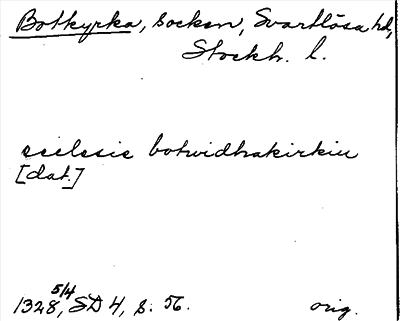 Botkyrka, socken, Svartlösa hd,
Stockh. l.
ecclesie botvidhakirkiu
[dat.]
1328 5/4, SD 4, s. 56. orig.